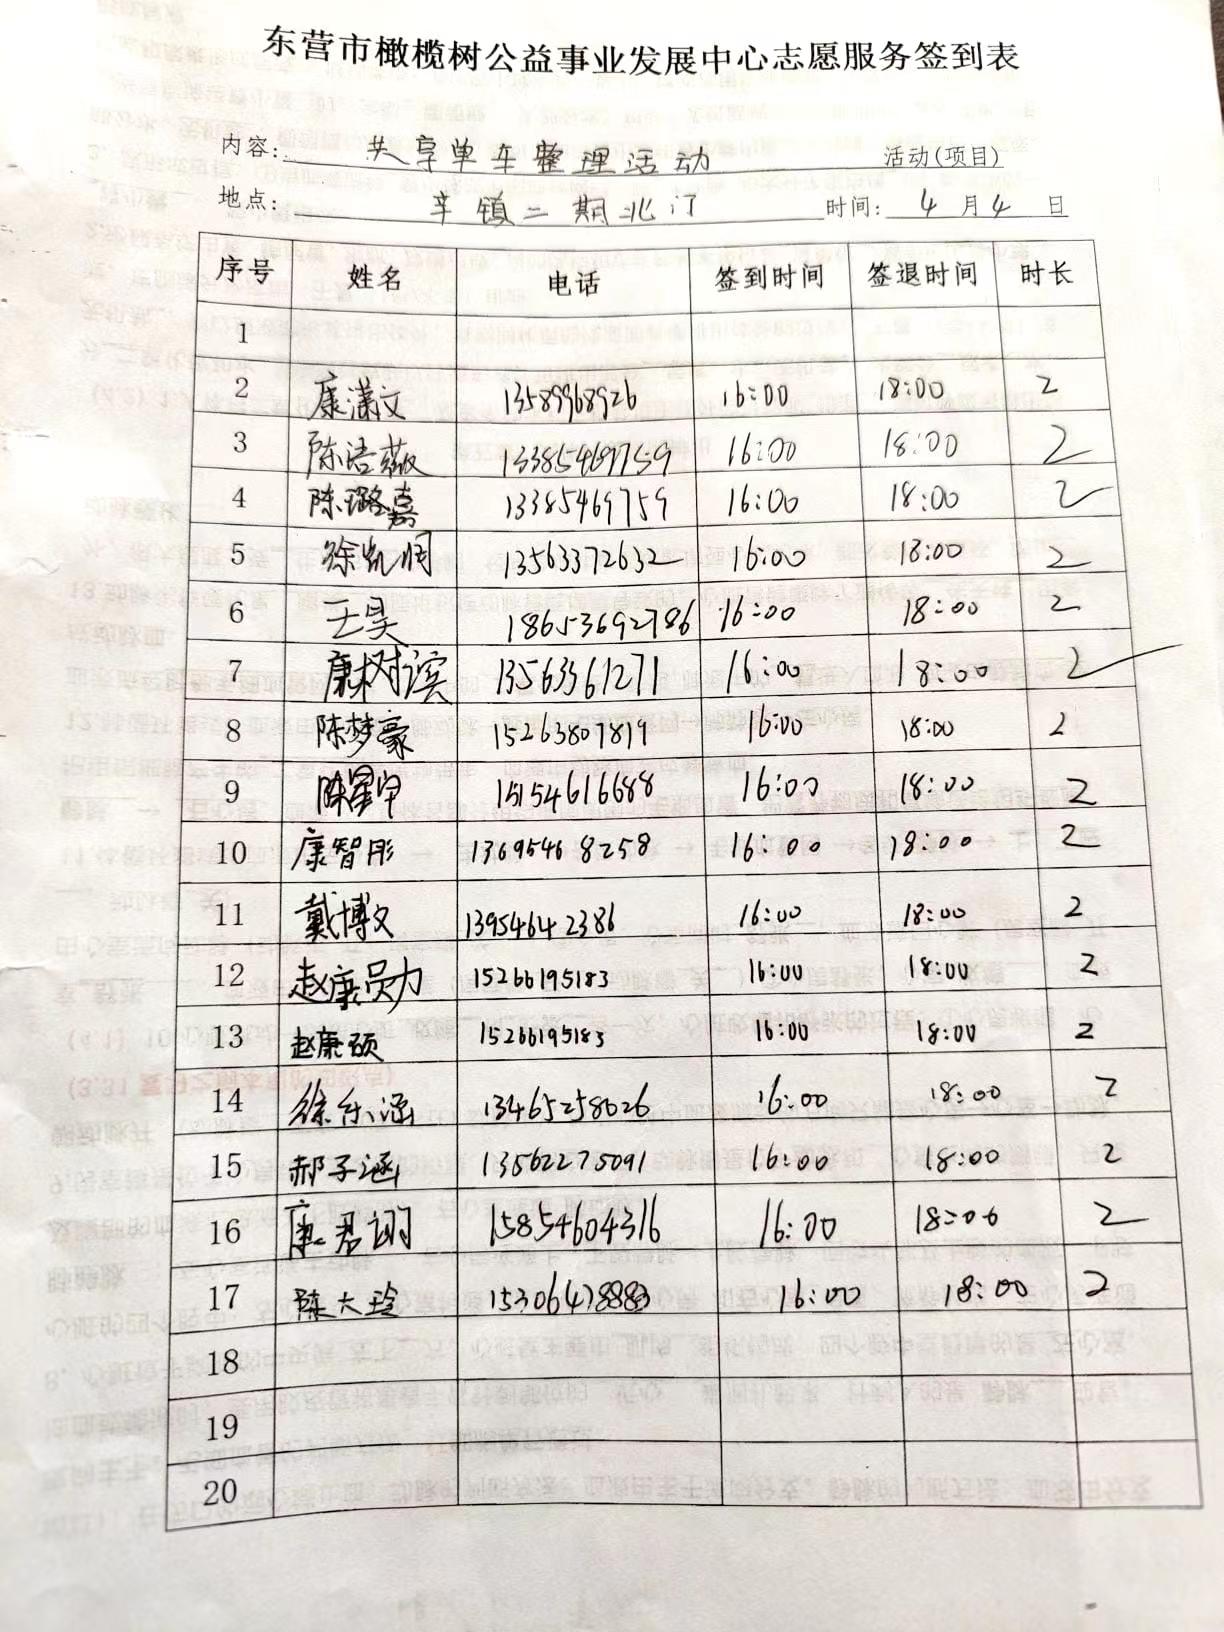 东营市橄榄树公益事业发展中心志愿服务签到表
内容: 共享单车整理活动 活动(项目)
地点: 辛镇二期北门 时间: 4 月 4 日
序号 姓名 电话 签到时间 签退时间 时长
1
2 康潇文 13589968926 16:00 18:00 2
3 陈浩薇 13385469759 16:00 18:00 2
4 陈璐嘉 13385469759 16:00 18:00 2
5 13563372632 16:00 18:00 2
6 王昊 18653692786 16:00 18:00 2
7 康树滨 13563361271 16:00 18:00 2
8 陈梦豪 15263807819 16:00 18:00 2
9 陈星宇 15154616688 16:00 18:00 2
10 康智彤 13695468258 16:00 18:00 2
11 戴博文 13954642386 16:00 18:00 2
12 赵康员力 15266195183 16:00 18:00 2
13 赵康硕 15266195183 16:00 18:00 2
14 徐乐涵 13465258026 16:00 18:00 2
15 郝子涵 13562275091 16:00 18:00 2
16 康君翊 15854604316 16:00 18:00 2
17 陈大玲 16:00 18:00 2
18
19
20